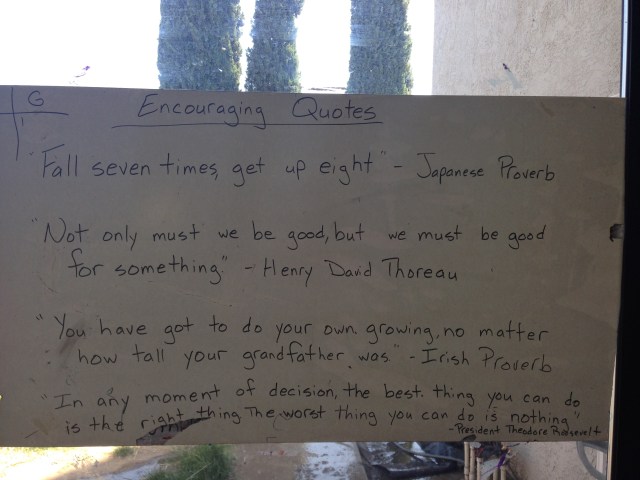 G
Encouraging Quotes
"Fall seven times, get up eight" - Japanese Proverb
"Not only must we be good, but we must be good
for something." - Henry David Thoreau
"You have got to do your own growing, no matter
how tall your grandfather was." - Irish Proverb
"In any moment of decision, the best thing you can do
is the right thing. The worst thing you can do is nothing"
-President Theodore Roosevelt